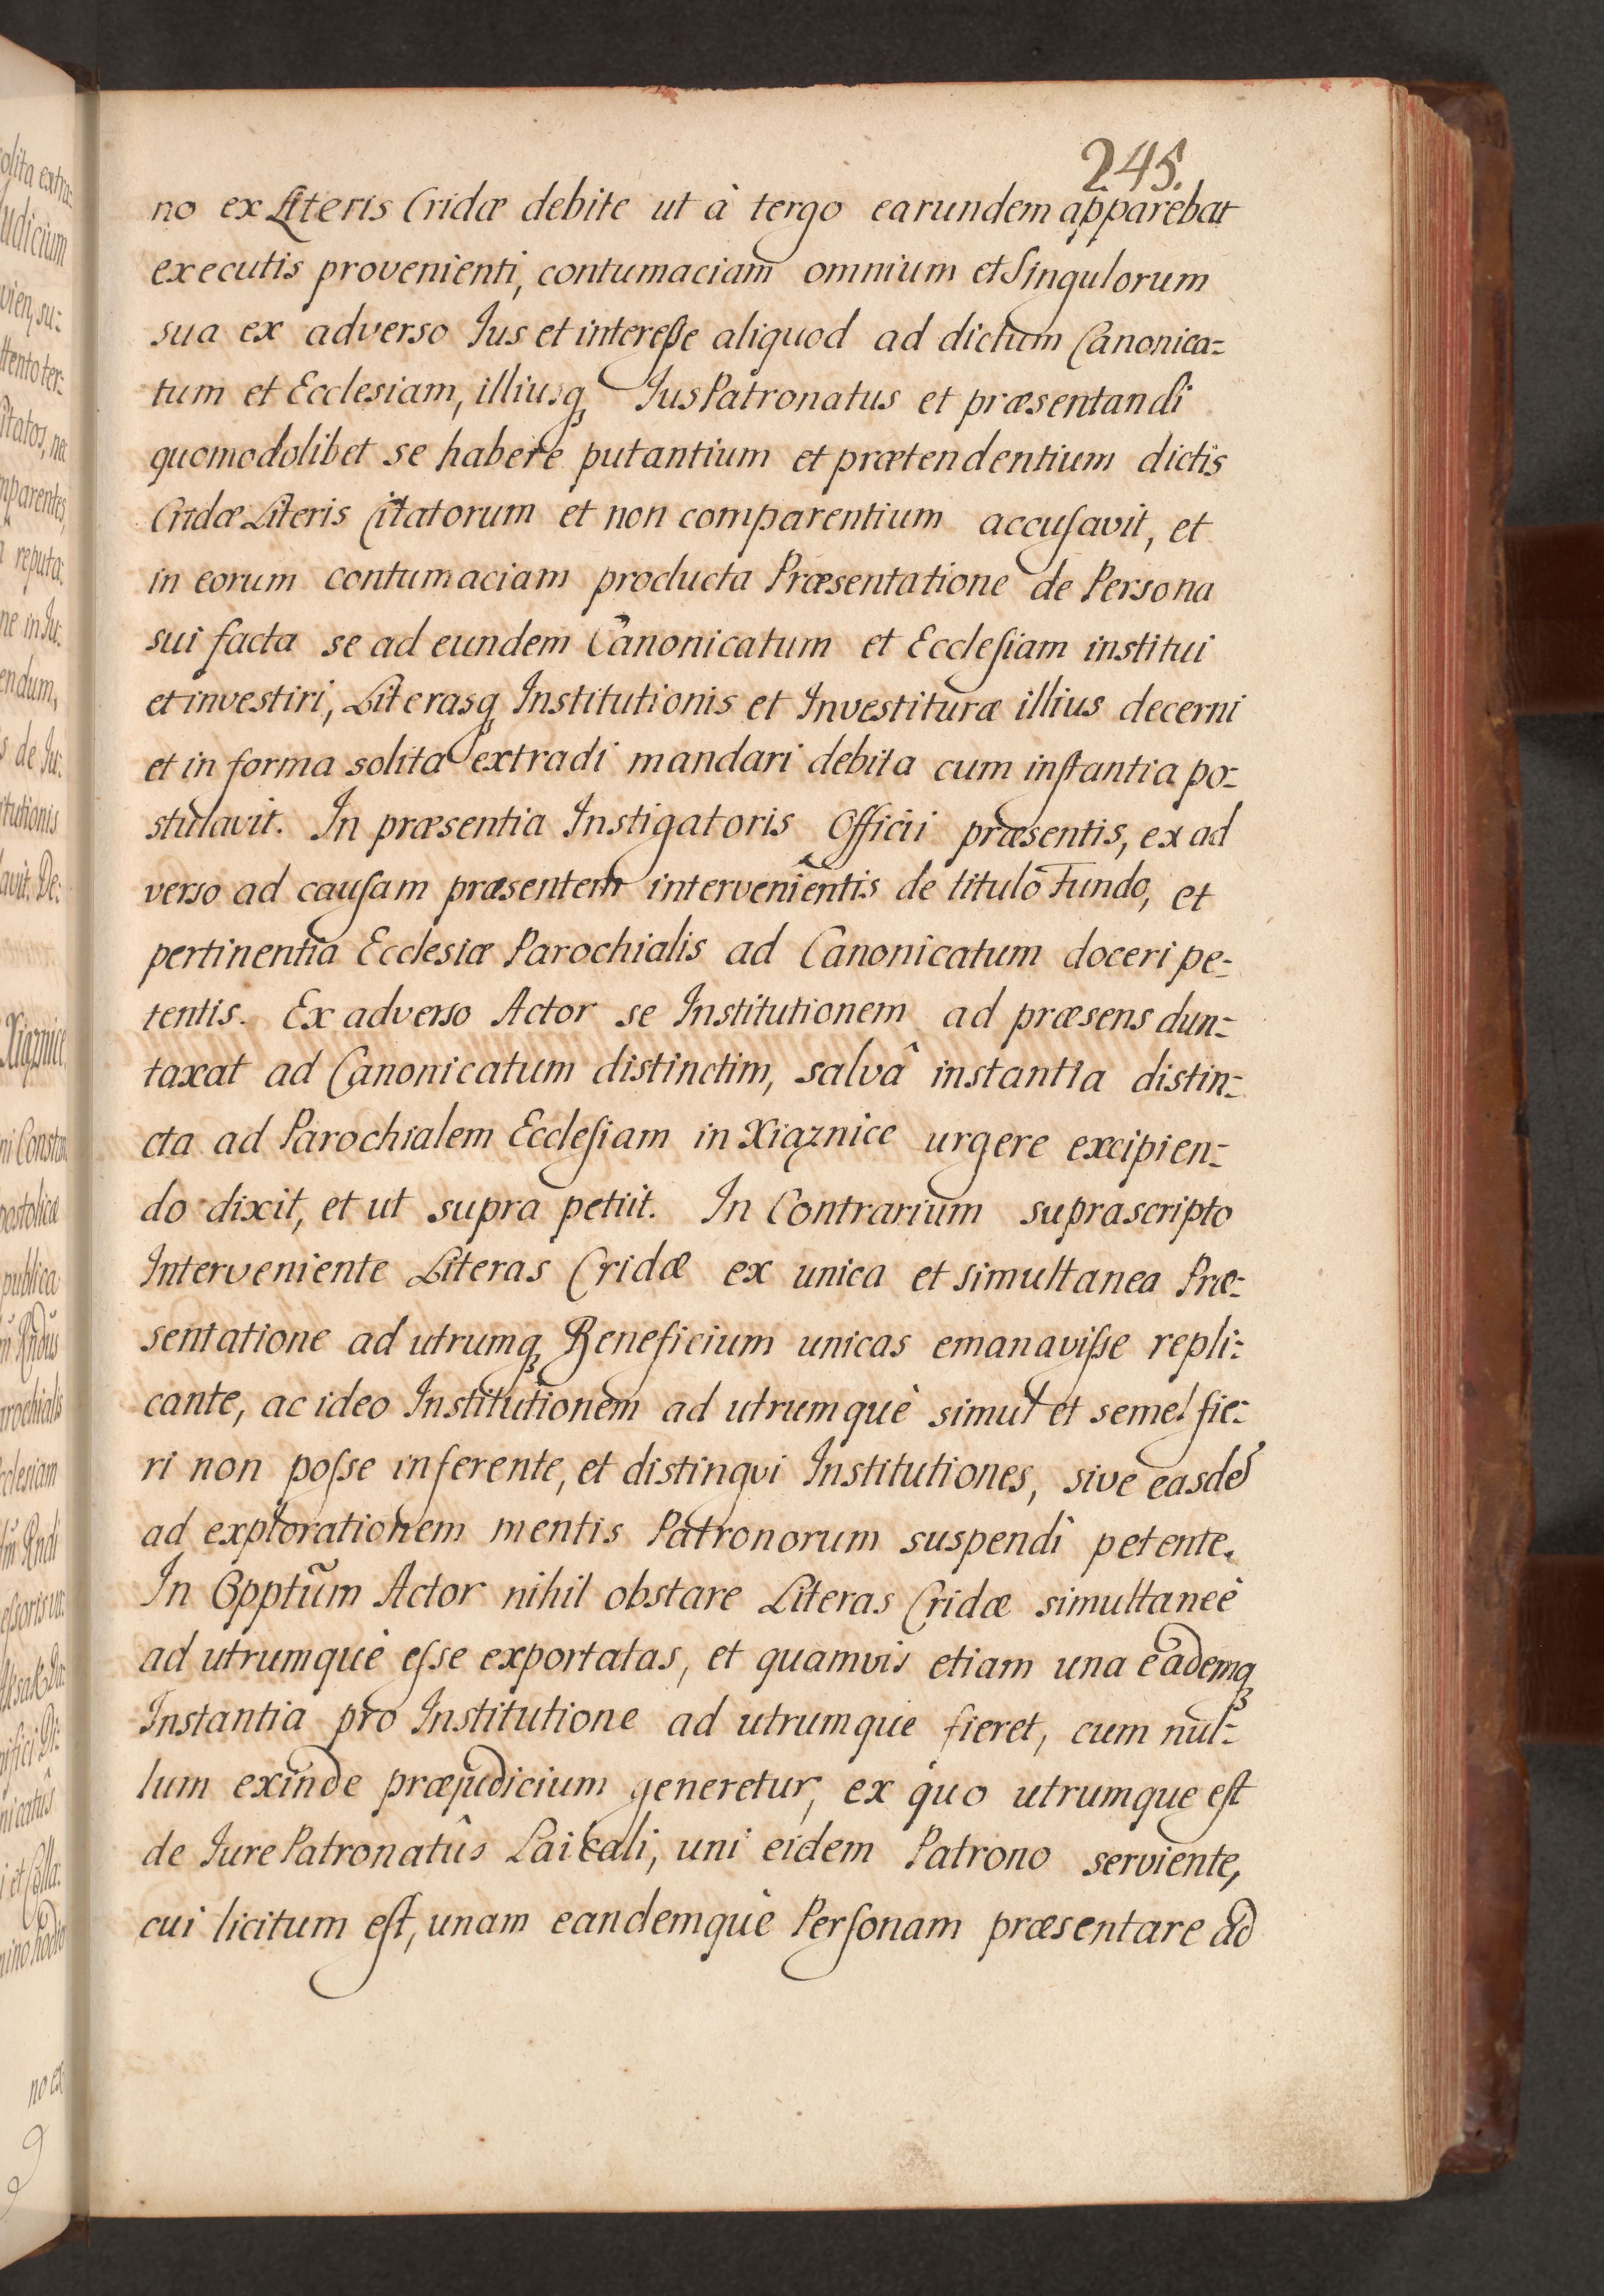 245.
no ex Literis Cridæ debite ut à tergo earundem apparebat
executis provenienti, contumaciam omnium et Singulorum
sua ex adverso Jus et interesse aliquod ad dictum Canonica=
tum et Ecclesiam, illiusq₃ Jus Patronatus et præsentandi
quomodolibet se habere putantium et prætendentium dictis
Cridæ Literis Citatorum et non comparentium accuſavit, et
in eorum contumaciam producta Præsentatione de Persona
sui facta se ad eundem Canonicatum et Eccleſiam institui
et investiri, Literasq₃ Institutionis et Investituræ illius decerni
et in forma solita extradi mandari debita cum inſtantia po=
stulavit. In præsentia Instigatoris Officii præsentis, ex ad
verso ad cauſam præsentem intervenientis de titulo Fundo, et
pertinentia Ecclesiæ Parochialis ad Canonicatum doceri pe=
tentis. Ex adverso Actor se Institutionem ad præsens dun=
taxat ad Canonicatum distinctim, salvâ instantia distin=
cta ad Parochialem Eccleſiam in Xiąznice urgere excipien=
do dixit, et ut supra petiit. In Contrarium suprascripto
Interveniente Literas Cridæ ex unica et simultanea Præ=
sentatione ad utrumq₃ Beneficium unicas emanaviſse repli=
cante, ac ideo Institutionem ad utrumquè simul et semel fie=
ri non poſse inferente, et distingvi Institutiones, sive easdẽ
ad explorationem mentis Patronorum suspendi petente.
In Opptũm Actor nihil obstare Literas Cridæ simultaneè
ad utrumquè eſse exportatas, et quamvis etiam una eademq₃
Instantia pro Institutione ad utrumque fieret, cum nul=
lum exinde præjudicium generetur, ex quo utrumque eſt
de Jure Patronatûs Laicali, uni eidem Patrono serviente,
cui licitum eſt, unam eandemquè Perſonam præsentare ad